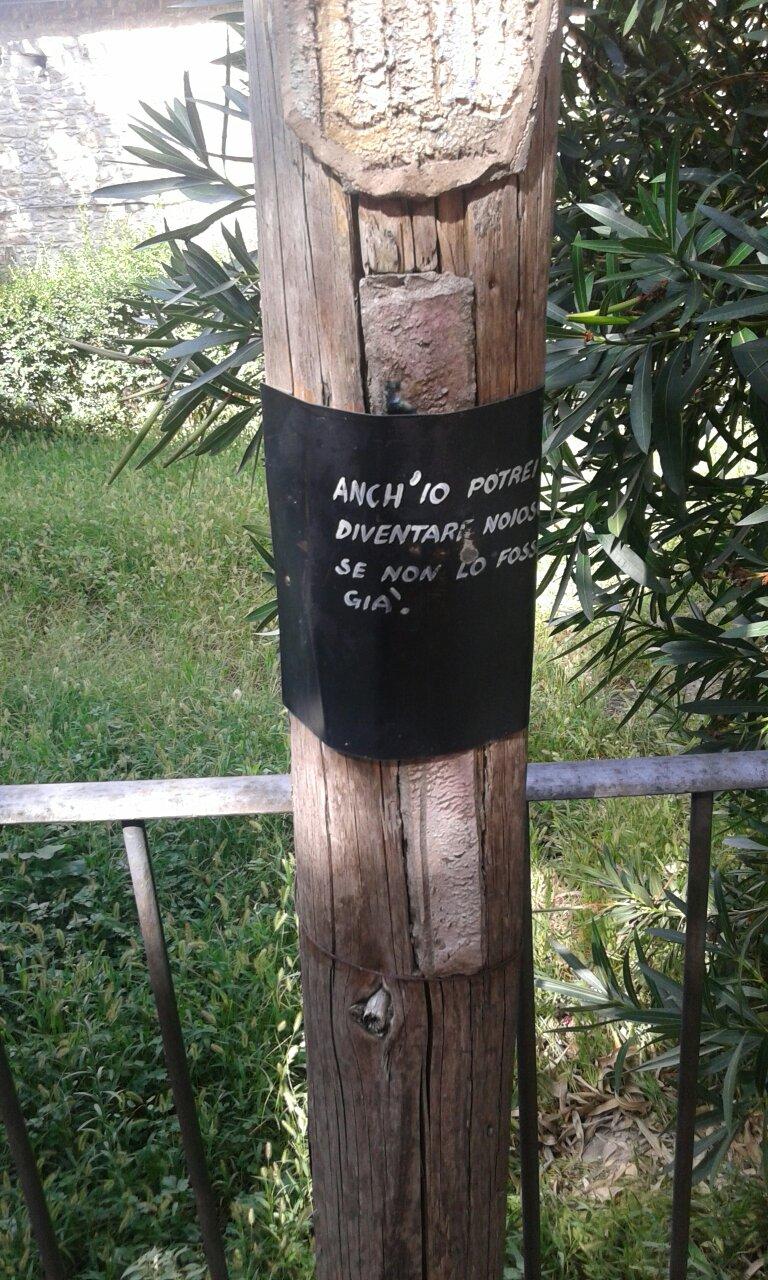 ANCH'IO POTREI
DIVENTARE NOIOS
SE NON LO FOSS
GIA'.